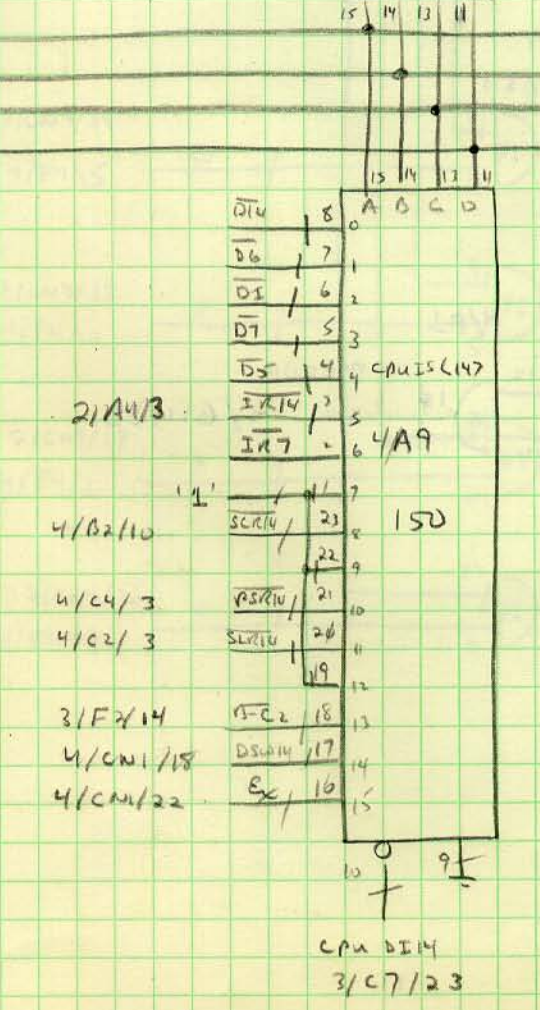 15 14 13 11
15 14 13 11
A B C D
D14 8 0
D6 7 1
D1 6 2
D7 5 3
D5 4 4
2/A4/3 IR14 3 5
IR7 2 6
4/A9
'1' 1 7
150
4/B2/10 SCR14 23 8
22 9
4/C4/3 21 10
4/C2/3 SLR14 20 11
19 12
3/F2/14 18 13
4/CN1/18 DSW14 17 14
4/CN1/22 Ex 16 15
10 9
CPU DI14
3/C7/23